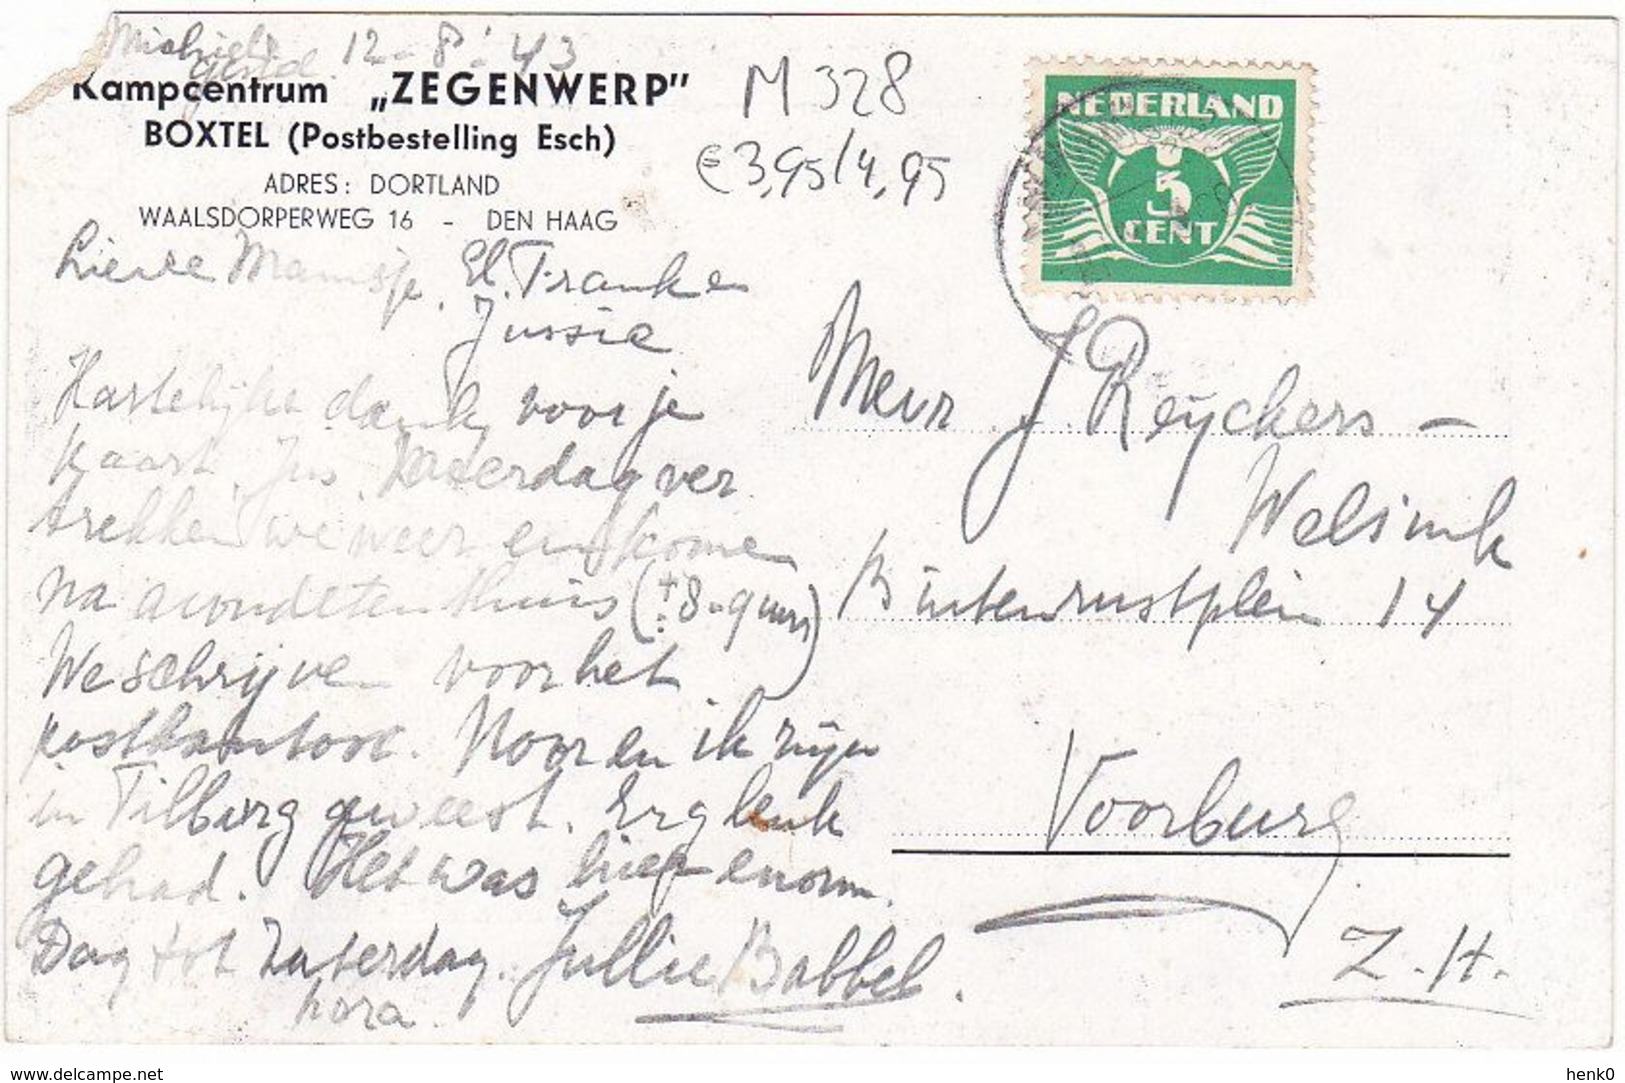 12-8-'43
Kampcentrum „ZEGENWERP"
BOXTEL (Postbestelling Esch)
ADRES: DORTLAND
WAALSDORPERWEG 16 - DEN HAAG
M 328
€ 3,95/4,95
NEDERLAND
5
CENT
Lieve Mamsje, El. Franken
Jussie
Hartelijke dank voor je
kaart. Jus. Zaterdag ver
trekken we weer en komen
na avondeten thuis (± 8-9 uur)
We schrijven voor het
postkantoor. Noor en ik zijn
in Tilburg geweest. Erg leuk
gehad. Het was hier enorm.
Dag tot Zaterdag. Jullie Babbel.
hora.
Mevr J. Reyckers-
Welsink
Buitenrustplein 14
Voorburg
Z.-H.
www.delcampe.net
henk0